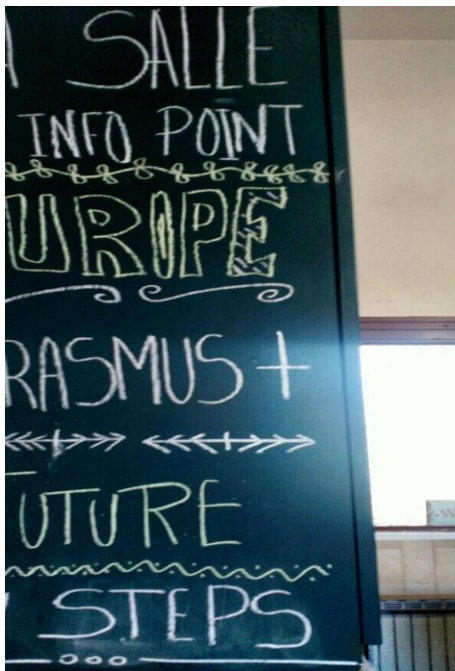 A SALLE
INFO POINT
URIPE
RASMUS +
FUTURE
STEPS